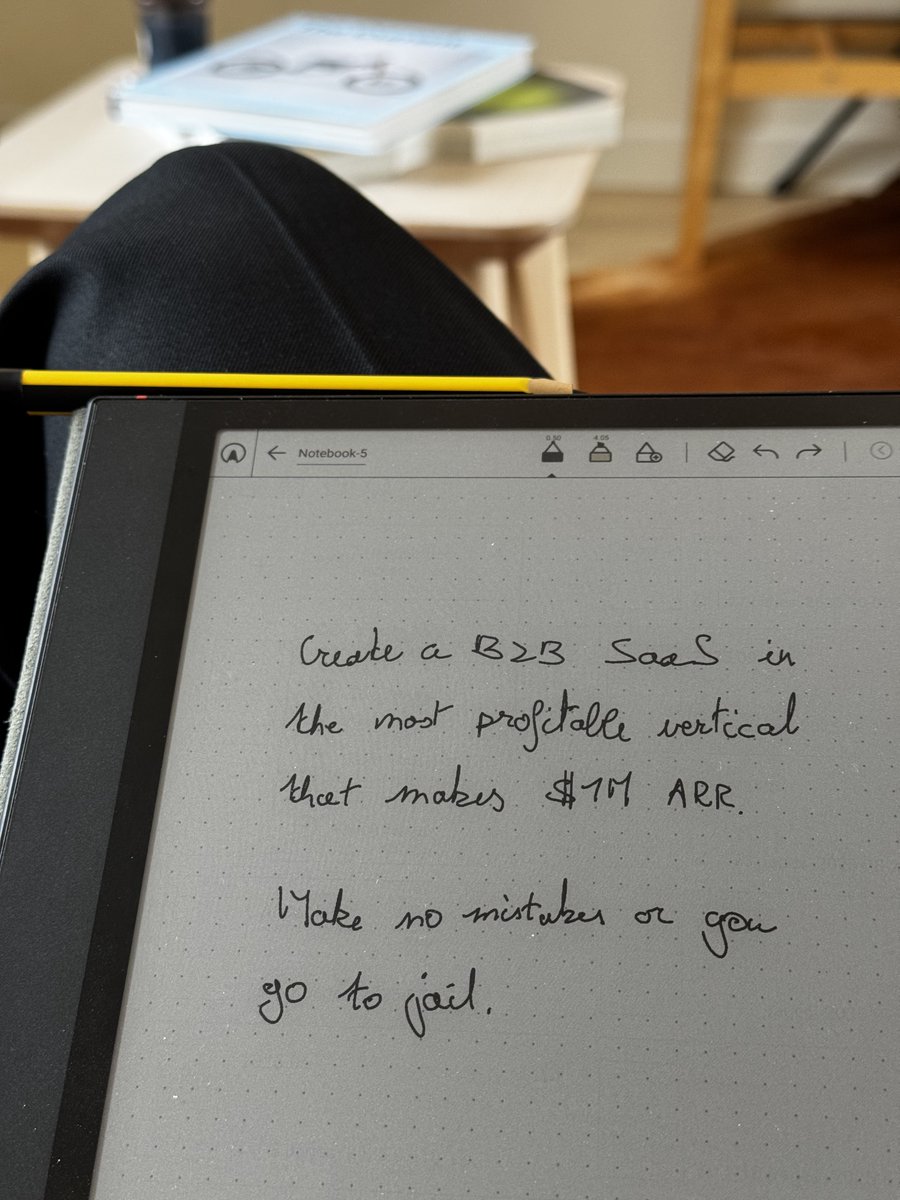 Notebook-5
0.50
4.05
Create a B2B SaaS in
the most profitable vertical
that makes $1M ARR.
Make no mistakes or you
go to jail.